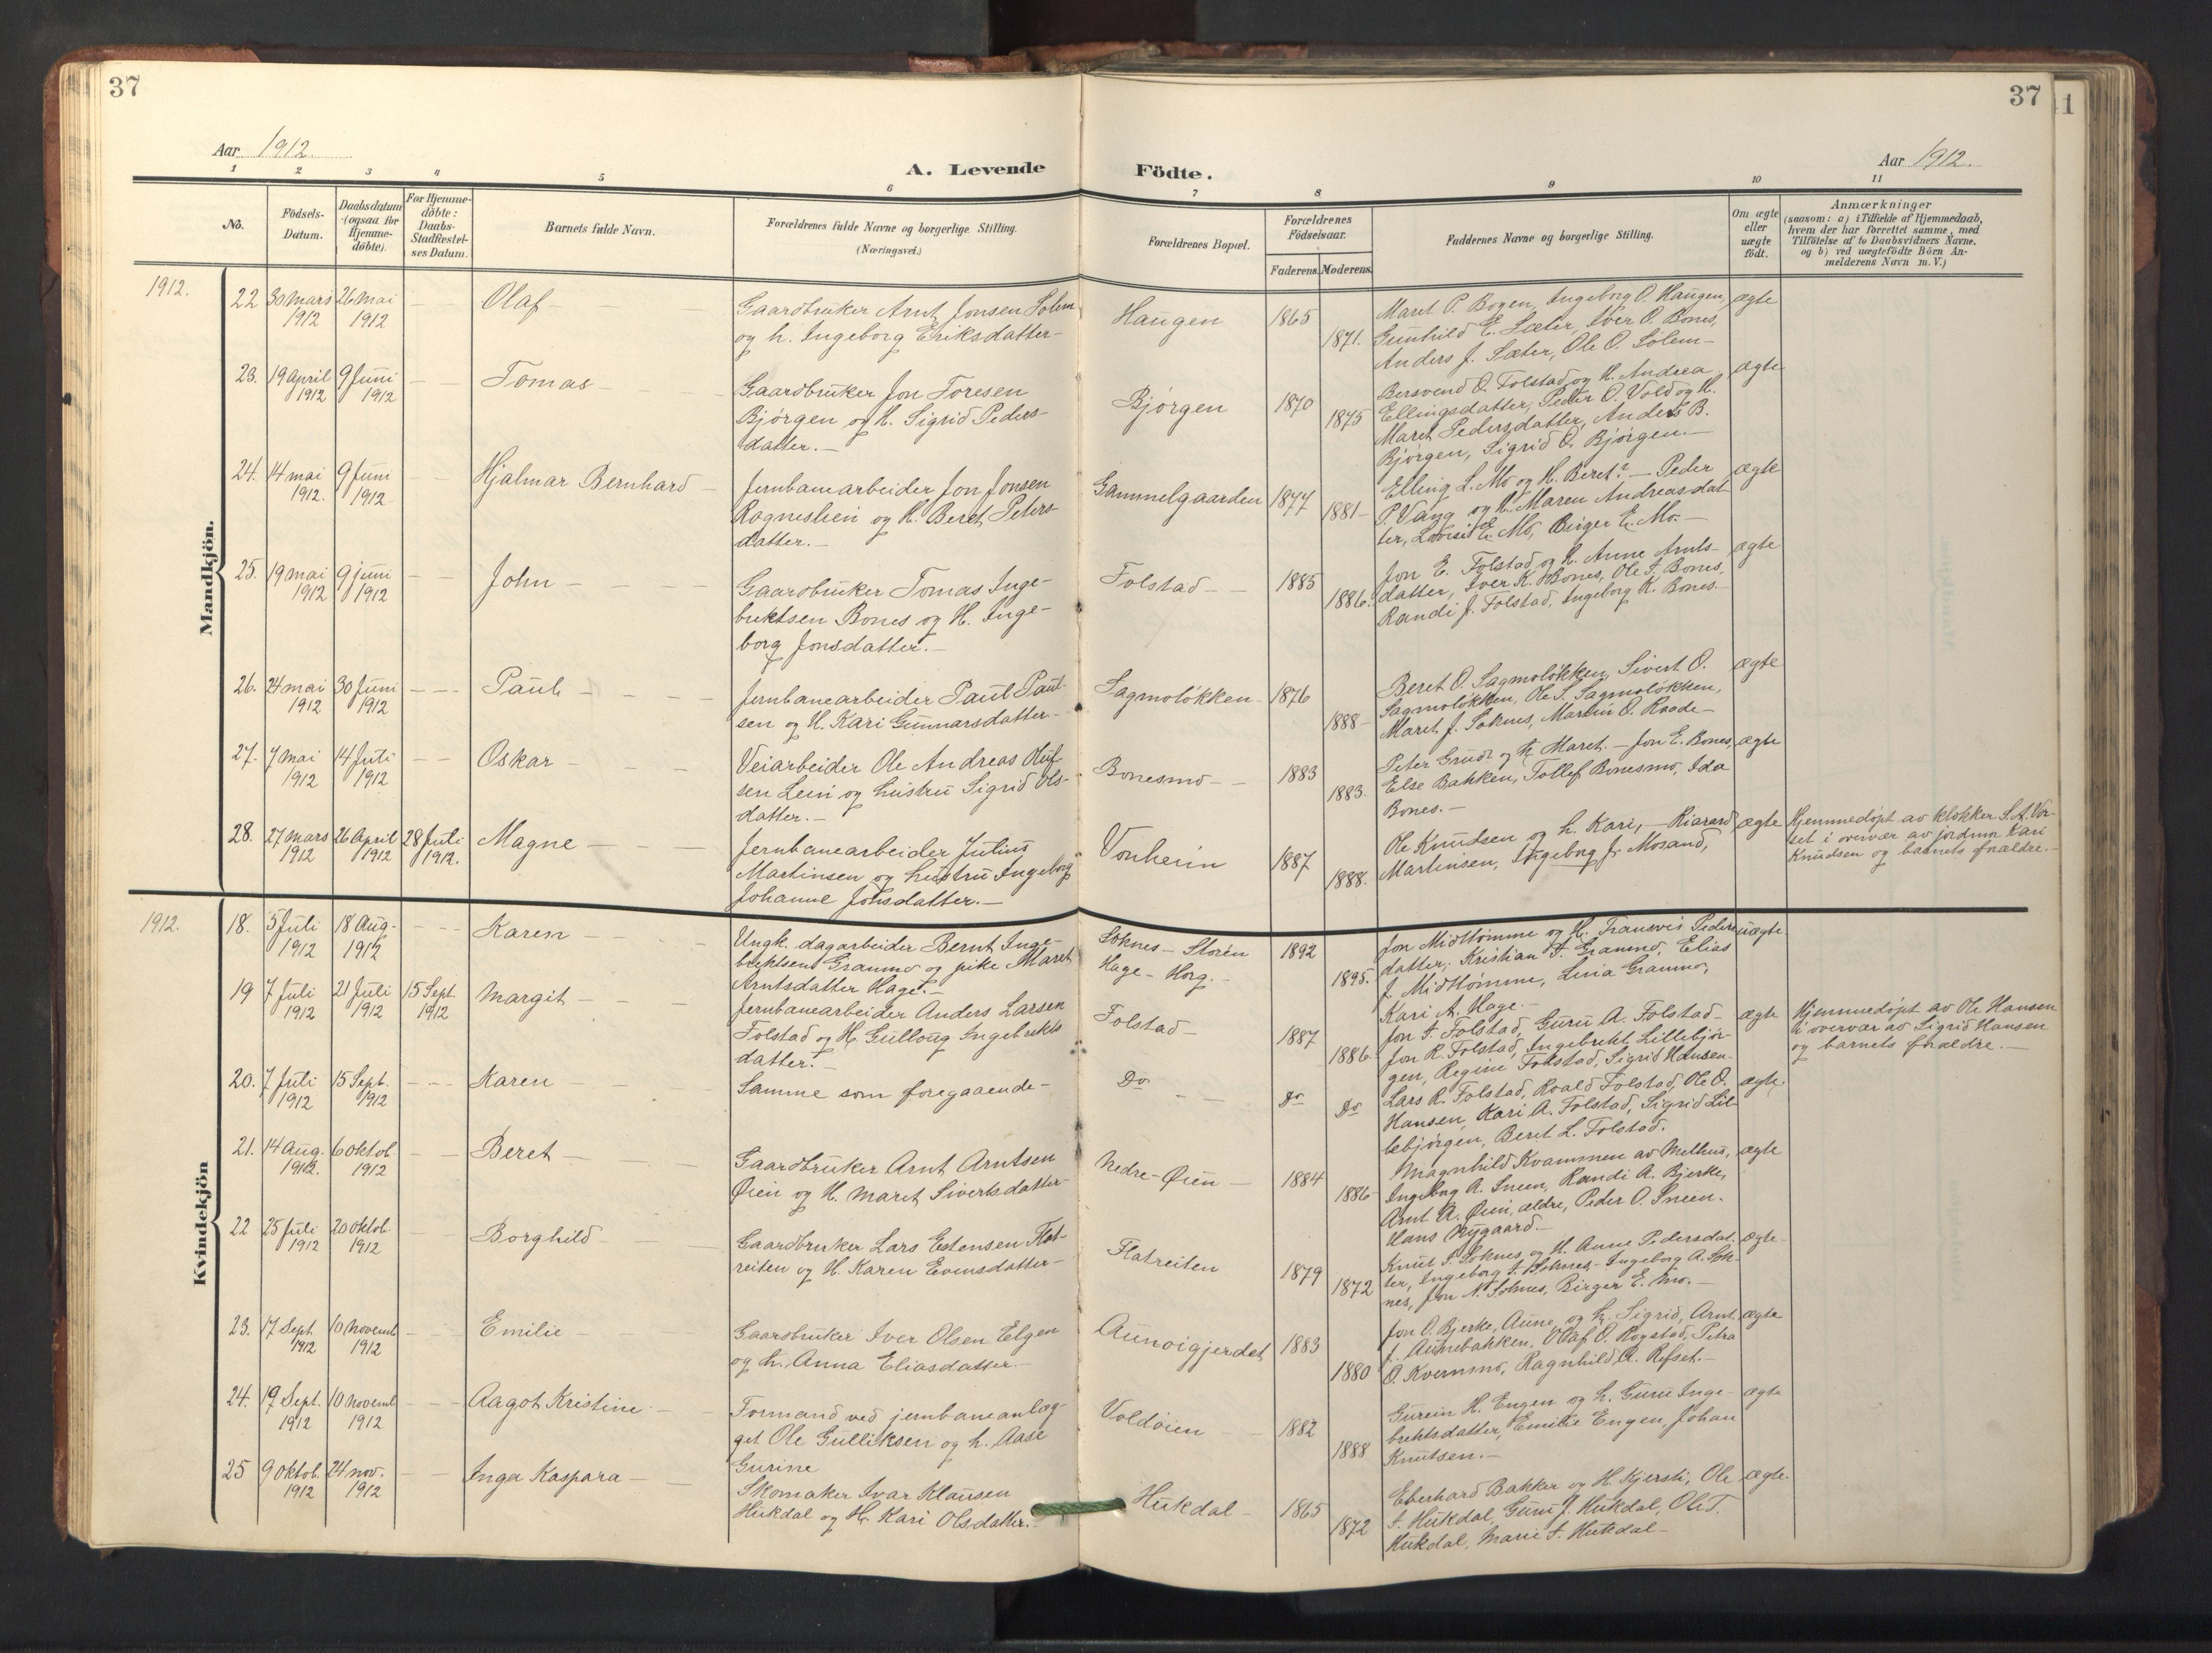 37
37
41
Aar 1912.
A. Levende
Födte.
Aar 1912.
1 2 3 4 5 6 7 8 9 10 11
No.
Födsels-
Datum.
Daabsdatum
(ogsaa for
Hjemme-
döbte).
For Hjemme-
döbte:
Daabs-
Stadfæstel-
ses Datum.
Barnets fulde Navn.
Forældrenes fulde Navne og borgerlige Stilling.
(Næringsvei.)
Forældrenes Bopæl.
Forældrenes
Födselsaar.
Faderens. Moderens.
Faddernes Navne og borgerlige Stilling.
Om ægte
eller
uægte
födt.
Anmærkninger
(saasom: a) i Tilfælde af Hjemmedaab,
hvem der har forrettet samme, med
Tilföielse af to Daabsvidners Navne,
og b) ved uægtefödte Börn An-
melderens Navn m. V.)
Mandkjön.
1912.
22 30 mars 1912 26 mai 1912 — — Olaf —
Gaardbruker Arnt Jonsen Solem
og h. Ingeborg Eriksdatter-
Haugen 1865 1871.
Maret P. Bogen, Ingeborg O. Haugen,
Gunhild E. Sæter, Iver O. Bones,
Anders J. Sæter, Ole O. Solem-
ægte
23. 19 April 1912 9 Juni 1912 — — Tomas —
Gaardbruker Jon Toresen
Bjørgen og H. Sigrid Peders-
datter.-
Bjørgen 1870 1875
Bersvend O. Folstad og H. Andrea
Ellingsdatter, Peder O. Vold og H.
Maret Pedersdatter, Anders B.
Bjørgen, Sigrid O. Bjørgen.-
ægte
24. 14 mai 1912. 9 Juni 1912 — — Hjalmar Bernhard —
Jernbanearbeider Jon Jonsen
Rogneslien og H. Beret Peters-
datter.-
Gammelgaarden 1877 1881-
Elling L. Mo og H. Beret? - Peder
P. Vaag og H. Maren Andreasdat
ter, Lovise E. Mo, Birger E. Mo.-
ægte
25. 19 mai 1912 9 juni 1912 — — John —
Gaardbruker Tomas Inge-
briktsen Bones og H. Inge-
borg Jonsdatter.-
Folstad — 1885 1886.
Jon E. Folstad og H. Anne Arnts-
datter, Iver K. Bones, Ole T. Bones,
Randi J. Folstad, Ingeborg K. Bones.-
ægte
26. 24 mai 1912 30 Juni 1912 — — Paul —
Jernbanearbeider Paul Paul-
sen og H. Kari Gunnarsdatter-
Sagmoløkken - 1876 1888-
Beret O. Sagmoløkken, Sivert O.
Sagmoløkken, Ole S. Sagmoløkken,
Maret J. Soknes, Martin O. Raade-
ægte
27. 7 mai 1912 14 Juli 1912 — — Oskar —
Veiarbeider Ole Andreas
sen Lein og hustru Sigrid Ols-
datter.-
Bonesmo - 1883 1883.
Peter og h. Maret. - Jon E. Bones,
Else Bakken, Tollef Bonesmo, Ida
Bones.-
ægte
28. 27 mars 1912 26 April 1912 28 Juli 1912. Magne —
Jernbanearbeider Julius
Martinsen og hustru Ingeborg
Johanne Johsdatter.-
Vonheim 1887 1888.
Ole Knudsen og h. Kari, - Rikard
Martinsen, Ingeborg J. Mosand,
ægte
Hjemmedøpt av klokker S. A. Vor-
set i overvær av jordmor Kari
Knudsen og barnets forældre.-
Kvindekjön
1912.
18. 5 Juli 1912 18 Aug. 1912 — — Karen —
Ungk. dagarbeider Bernt Inge-
briktsen Granmo og pike Maret
Arntsdatter Hage.-
Soknes - Støren
Hage - Horg.-
1892 1895.
Jon Midttømme og H. Peders
datter, Kristian T. Granmo, Elias
J. Midttømme, Lina Granmo,
Kari A. Hage.-
uægte.
19 7 Juli 1912 21 Juli 1912 15 Sept. 1912 Margit —
Jernbanearbeider Anders Larsen
Folstad og H. Gullaug Ingebrikts
datter.-
Folstad- 1887 1886.
Jon T. Folstad, Guru A. Folstad-
Jon R. Folstad, Ingebrikt Lillebjør-
gen, Regine Folstad, Sigrid Hansen-
ægte
Hjemmedøpt av Ole Hansen
i overvær av Sigrid Hansen
og barnets forældre.-
20. 7 Juli 1912 15 Sept. 1912 — — Karen —
Samme som foregaaende-
Do — Do Do
Lars R. Folstad, Roald Folstad, Ole O.
Hansen, Kari A. Folstad, Sigrid Lil-
lebjørgen, Beret L. Folstad.
ægte.
21. 14 Aug. 1912. 6 oktob. 1912 — — Beret —
Gaardbruker Arnt Arntsen
Øien og H. Maret Sivertsdatter-
Nedre-Øien - 1884 1886
Magnhild Kvammen av Melhus,
Ingeborg A. Sneen, Randi A. Bjerke,
Arnt A. Øien, ældre, Peder O. Sneen.
Hans Nygaard.-
ægte
22 25 Juli 1912 20 oktob. 1912 — — Borghild —
Gaardbruker Lars Estensen Flat-
reiten og H. Karen Evensdatter-
Flatreiten 1879 1872
Knut S. Soknes og H. Anne Pedersdat-
ter, Ingeborg T. Soknes - Ingeborg A. Sok-
nes, Jon N. Soknes, Birger E. Mo.-
ægte-
23. 17 Sept. 1912 10 novemb 1912 — — Emilie —
Gaardbruker Iver Olsen Elgen
og h. Anna Eliasdatter.-
Aunøigjerdet 1883 1880
Jon O. Bjerke, Aune, og h. Sigrid, Arnt
J. Aunebakken, Olaf O. Rogstad, Petra
O. Kvernmo, Ragnhild A. Refset.-
ægte
24. 19 Sept. 1912 10 novemb 1912 — — Aagot Kristine —
Formand ved jernbaneanlæg-
get Ole Gulliksen og h. Aase
Gurine
Voldøien 1882 1888
Gurein H. Engen og h. Guru Inge-
briktsdatter, Emilie Engen, Johan
Knutsen.-
ægte
25 9 oktob. 1912 24 nov. 1912 — — Inga Kaspara —
Skomaker Ivar Klausen
Hukdal og H. Kari Olsdatter.-
Hukdal - 1865 1872
Eberhard Bakker og H. Kjersti, Ole
T. Hukdal, Guru J. Hukdal, Ole T.
Hukdal, Marie T. Hukdal-
ægte.